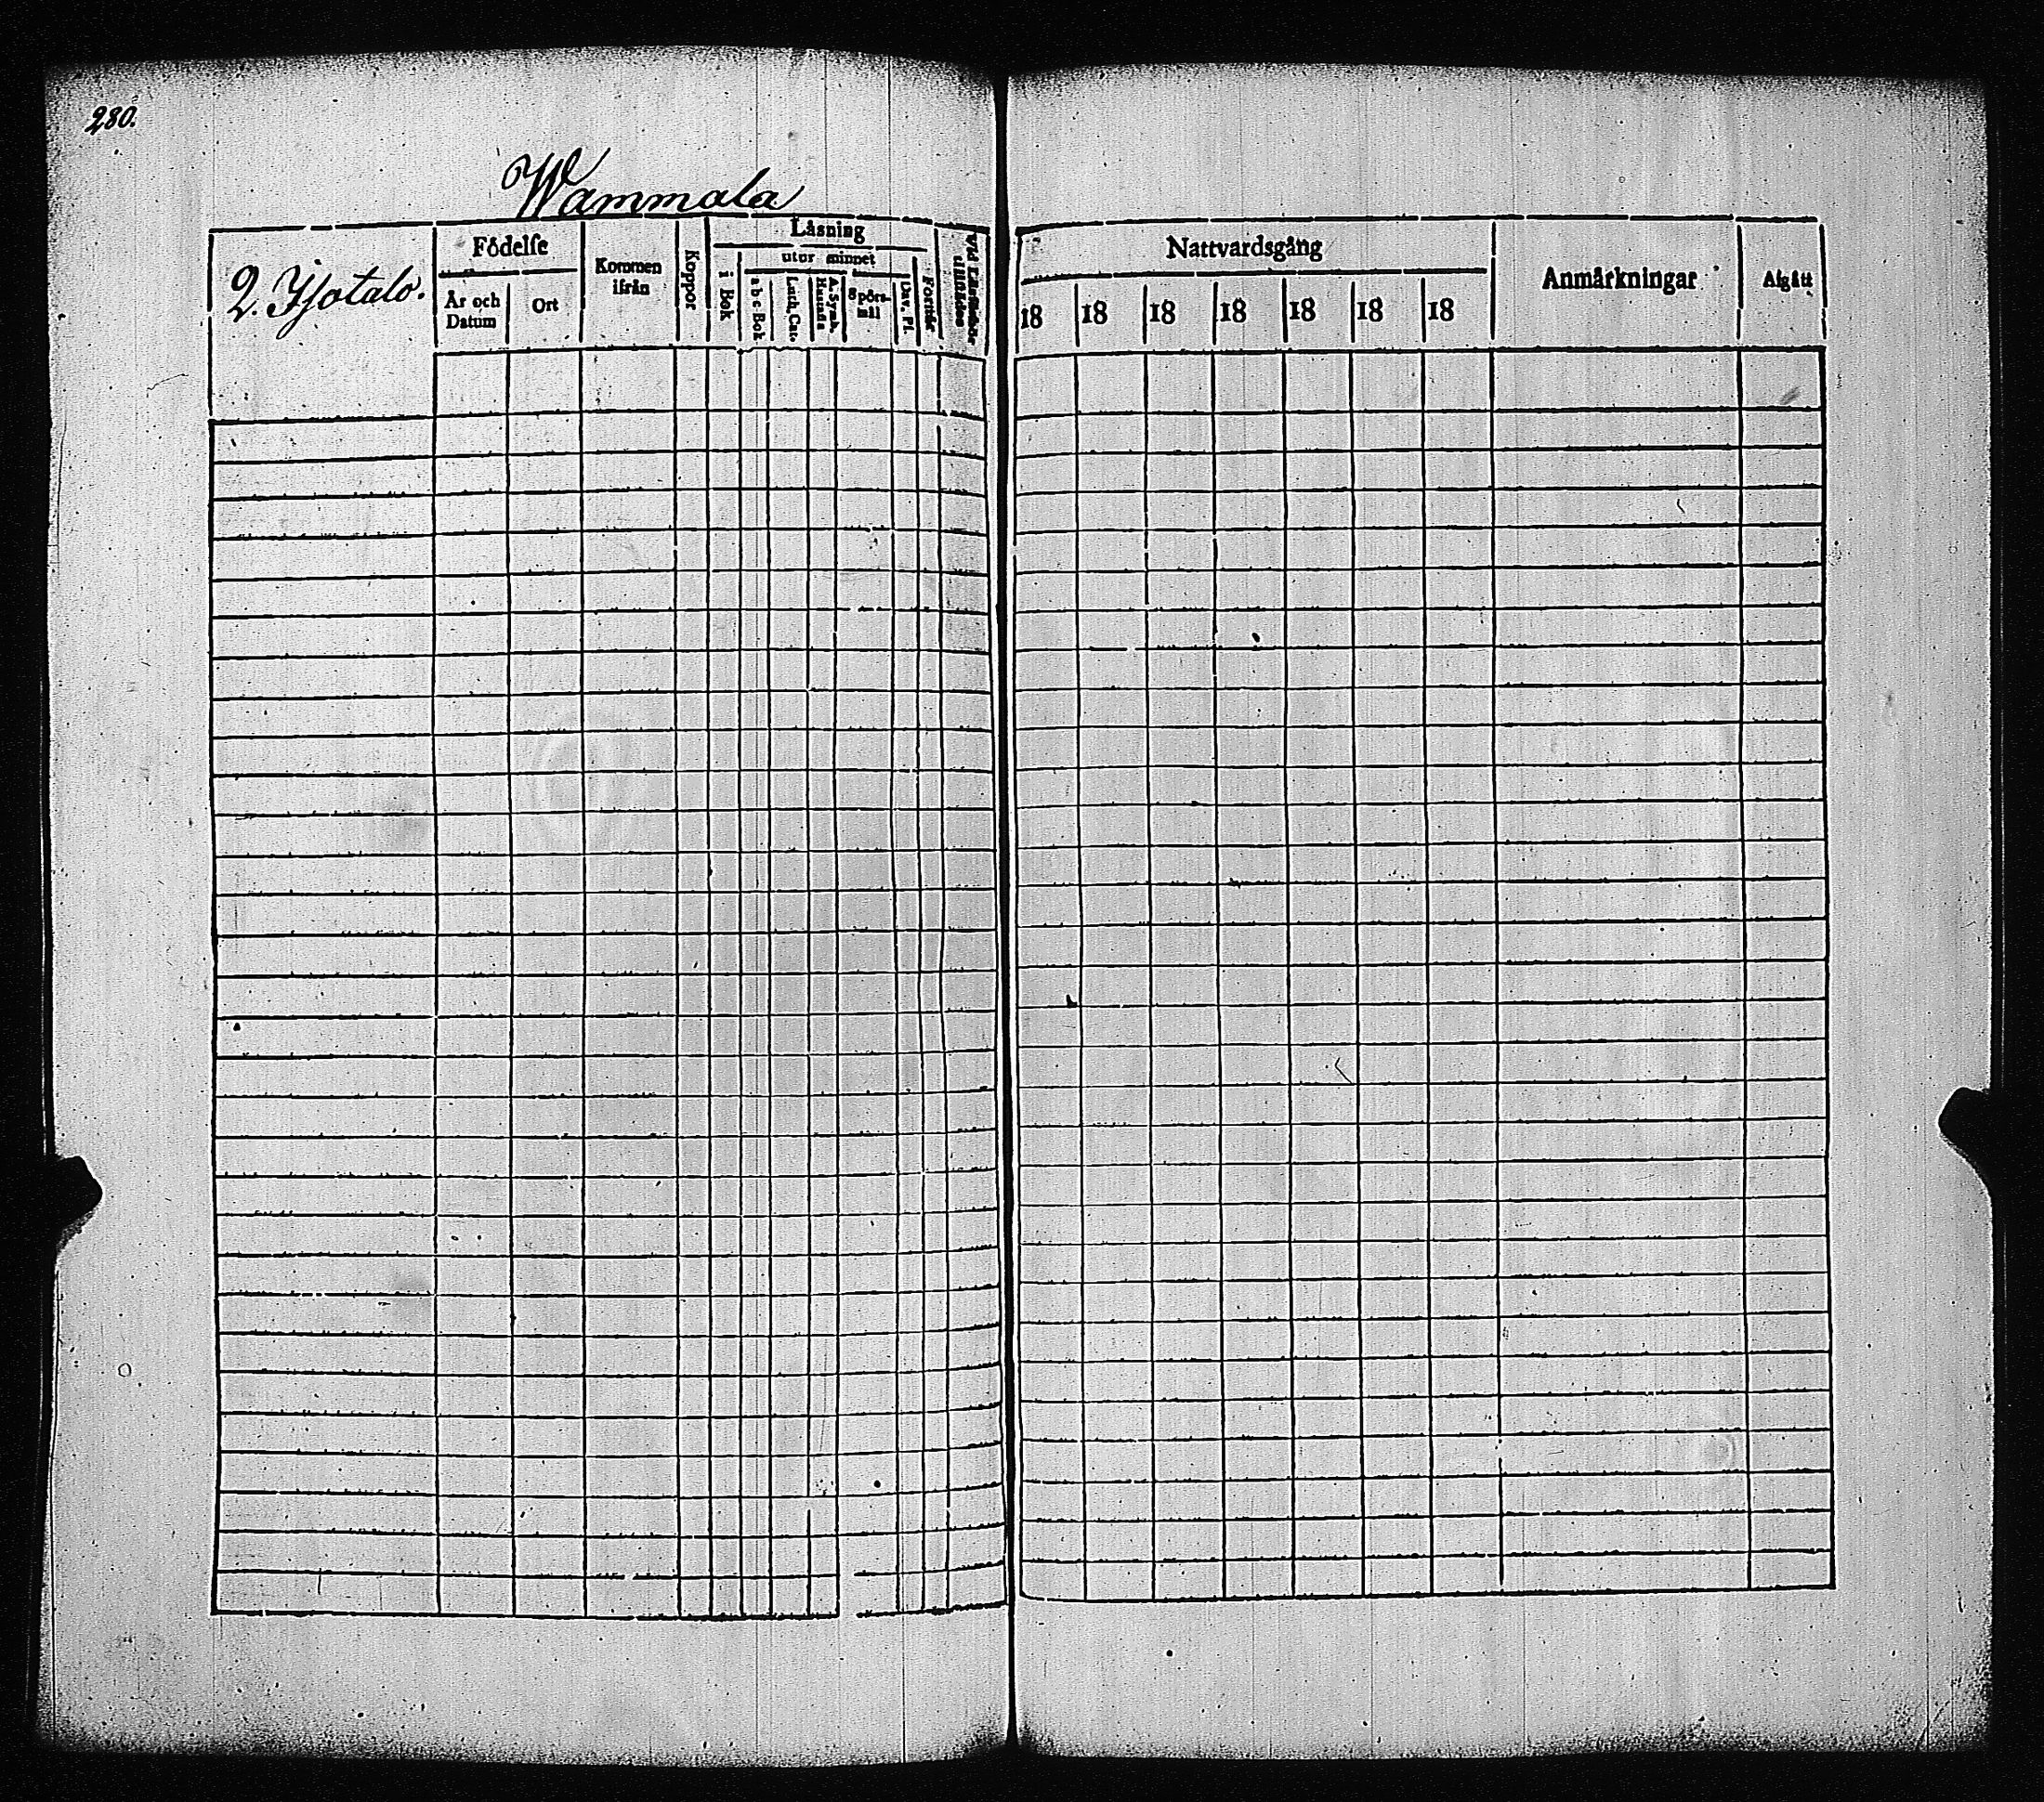 280.
Wammala
2. Isotalo.
Födelse
År och Datum
Ort
Kommen ifrån
Koppor
Läsning
i Bok
utur minnet
a b c Bok
Luth. Cat.
A. Symb. Hustafla
Spörsmål
Dav. Ps.
Förstår
Vid Läsförhör tillstädes
Nattvardsgång
18 18 18 18 18 18 18
Anmärkningar
Afgått